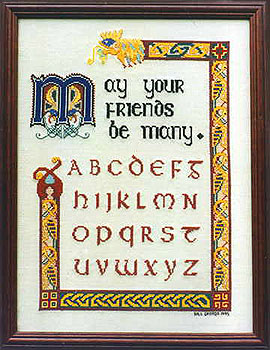 May your
friends
be many.
ABCDEFG
HIJKLMN
OPQRST
UVWXYZ